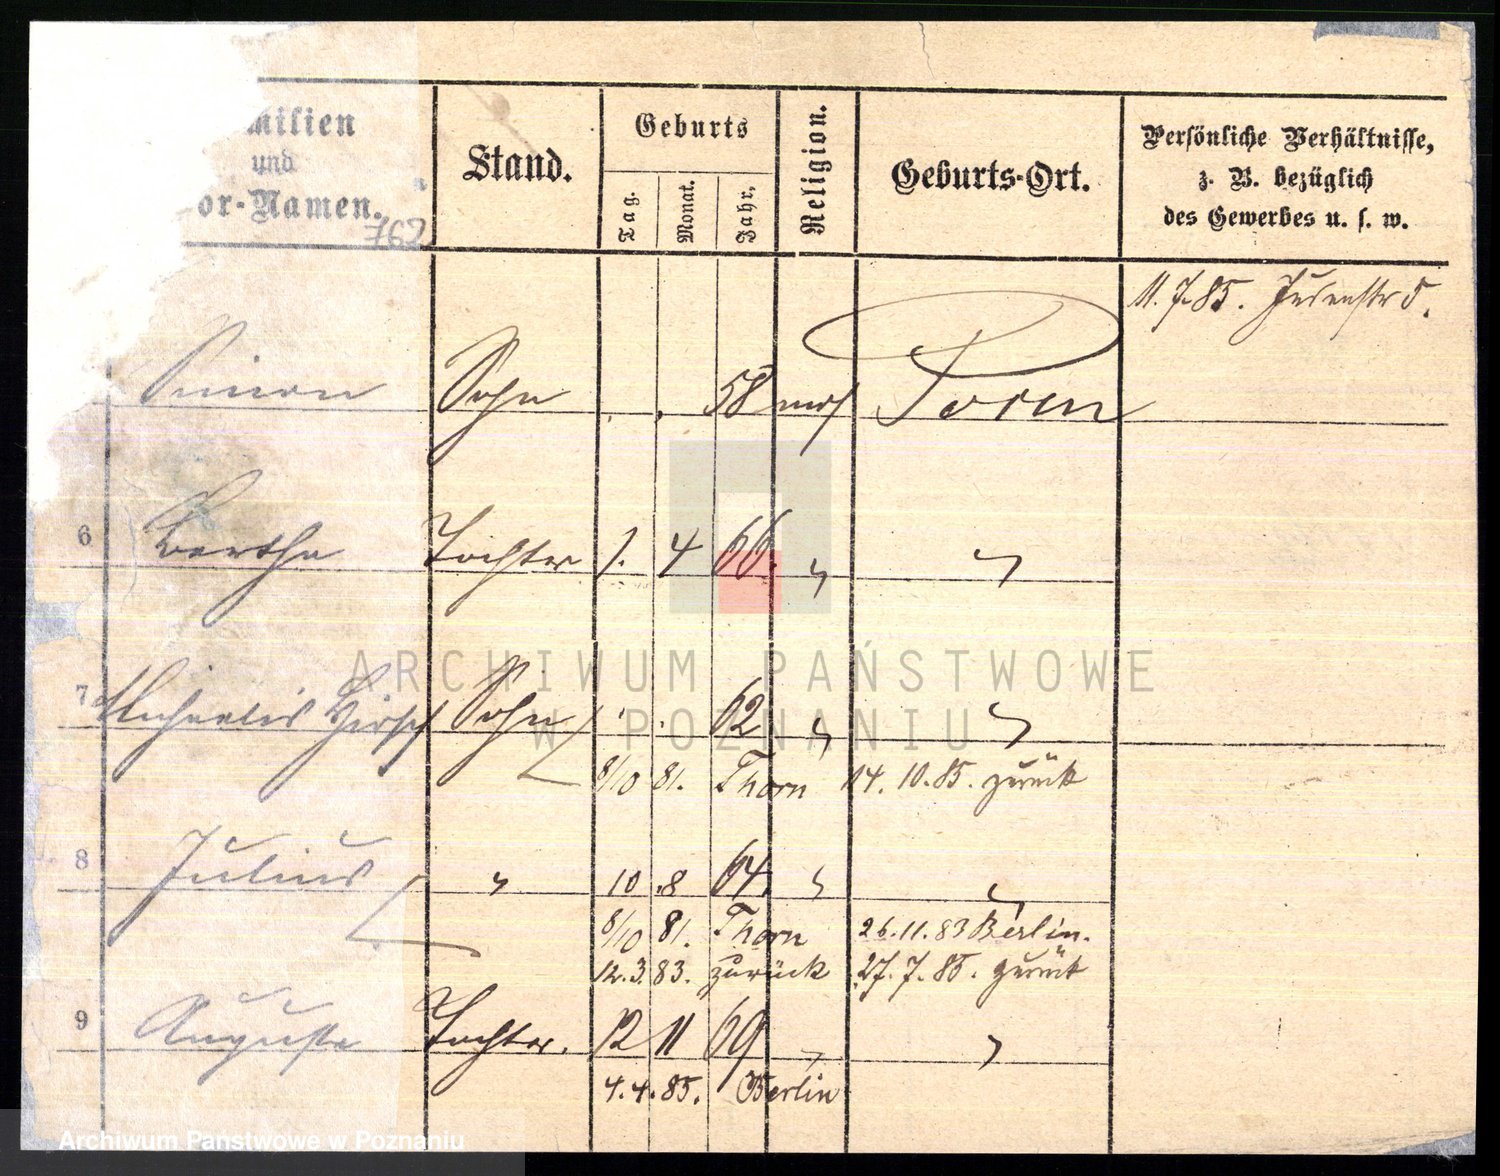 milien
und
or-Namen.
762
Stand.
Geburts
Tag.
Monat.
Jahr.
Religion.
Geburts-Ort.
Persönliche Verhältnisse,
z. B. bezüglich
des Gewerbes u. s. w.
11. 7. 85. Judenstr 5.
Simon Sohn . . 58 mos Posen
6 Bertha Tochter 1. 4 66. " "
7 Michaelis Hirsch Sohn . . 62 " "
8/10 81. Thorn 14. 10. 85. zurück
8 Julius " 10 . 8 64. " "
8/10 81. Thorn 26. 11. 83 Berlin.
12. 3. 83. zurück 27. 7. 85. zurück
9 Auguste Tochter. 12 11 69 " "
4. 4. 85. Berlin
ARCHIWUM PAŃSTWOWE
W POZNANIU
Archiwum Państwowe w Poznaniu